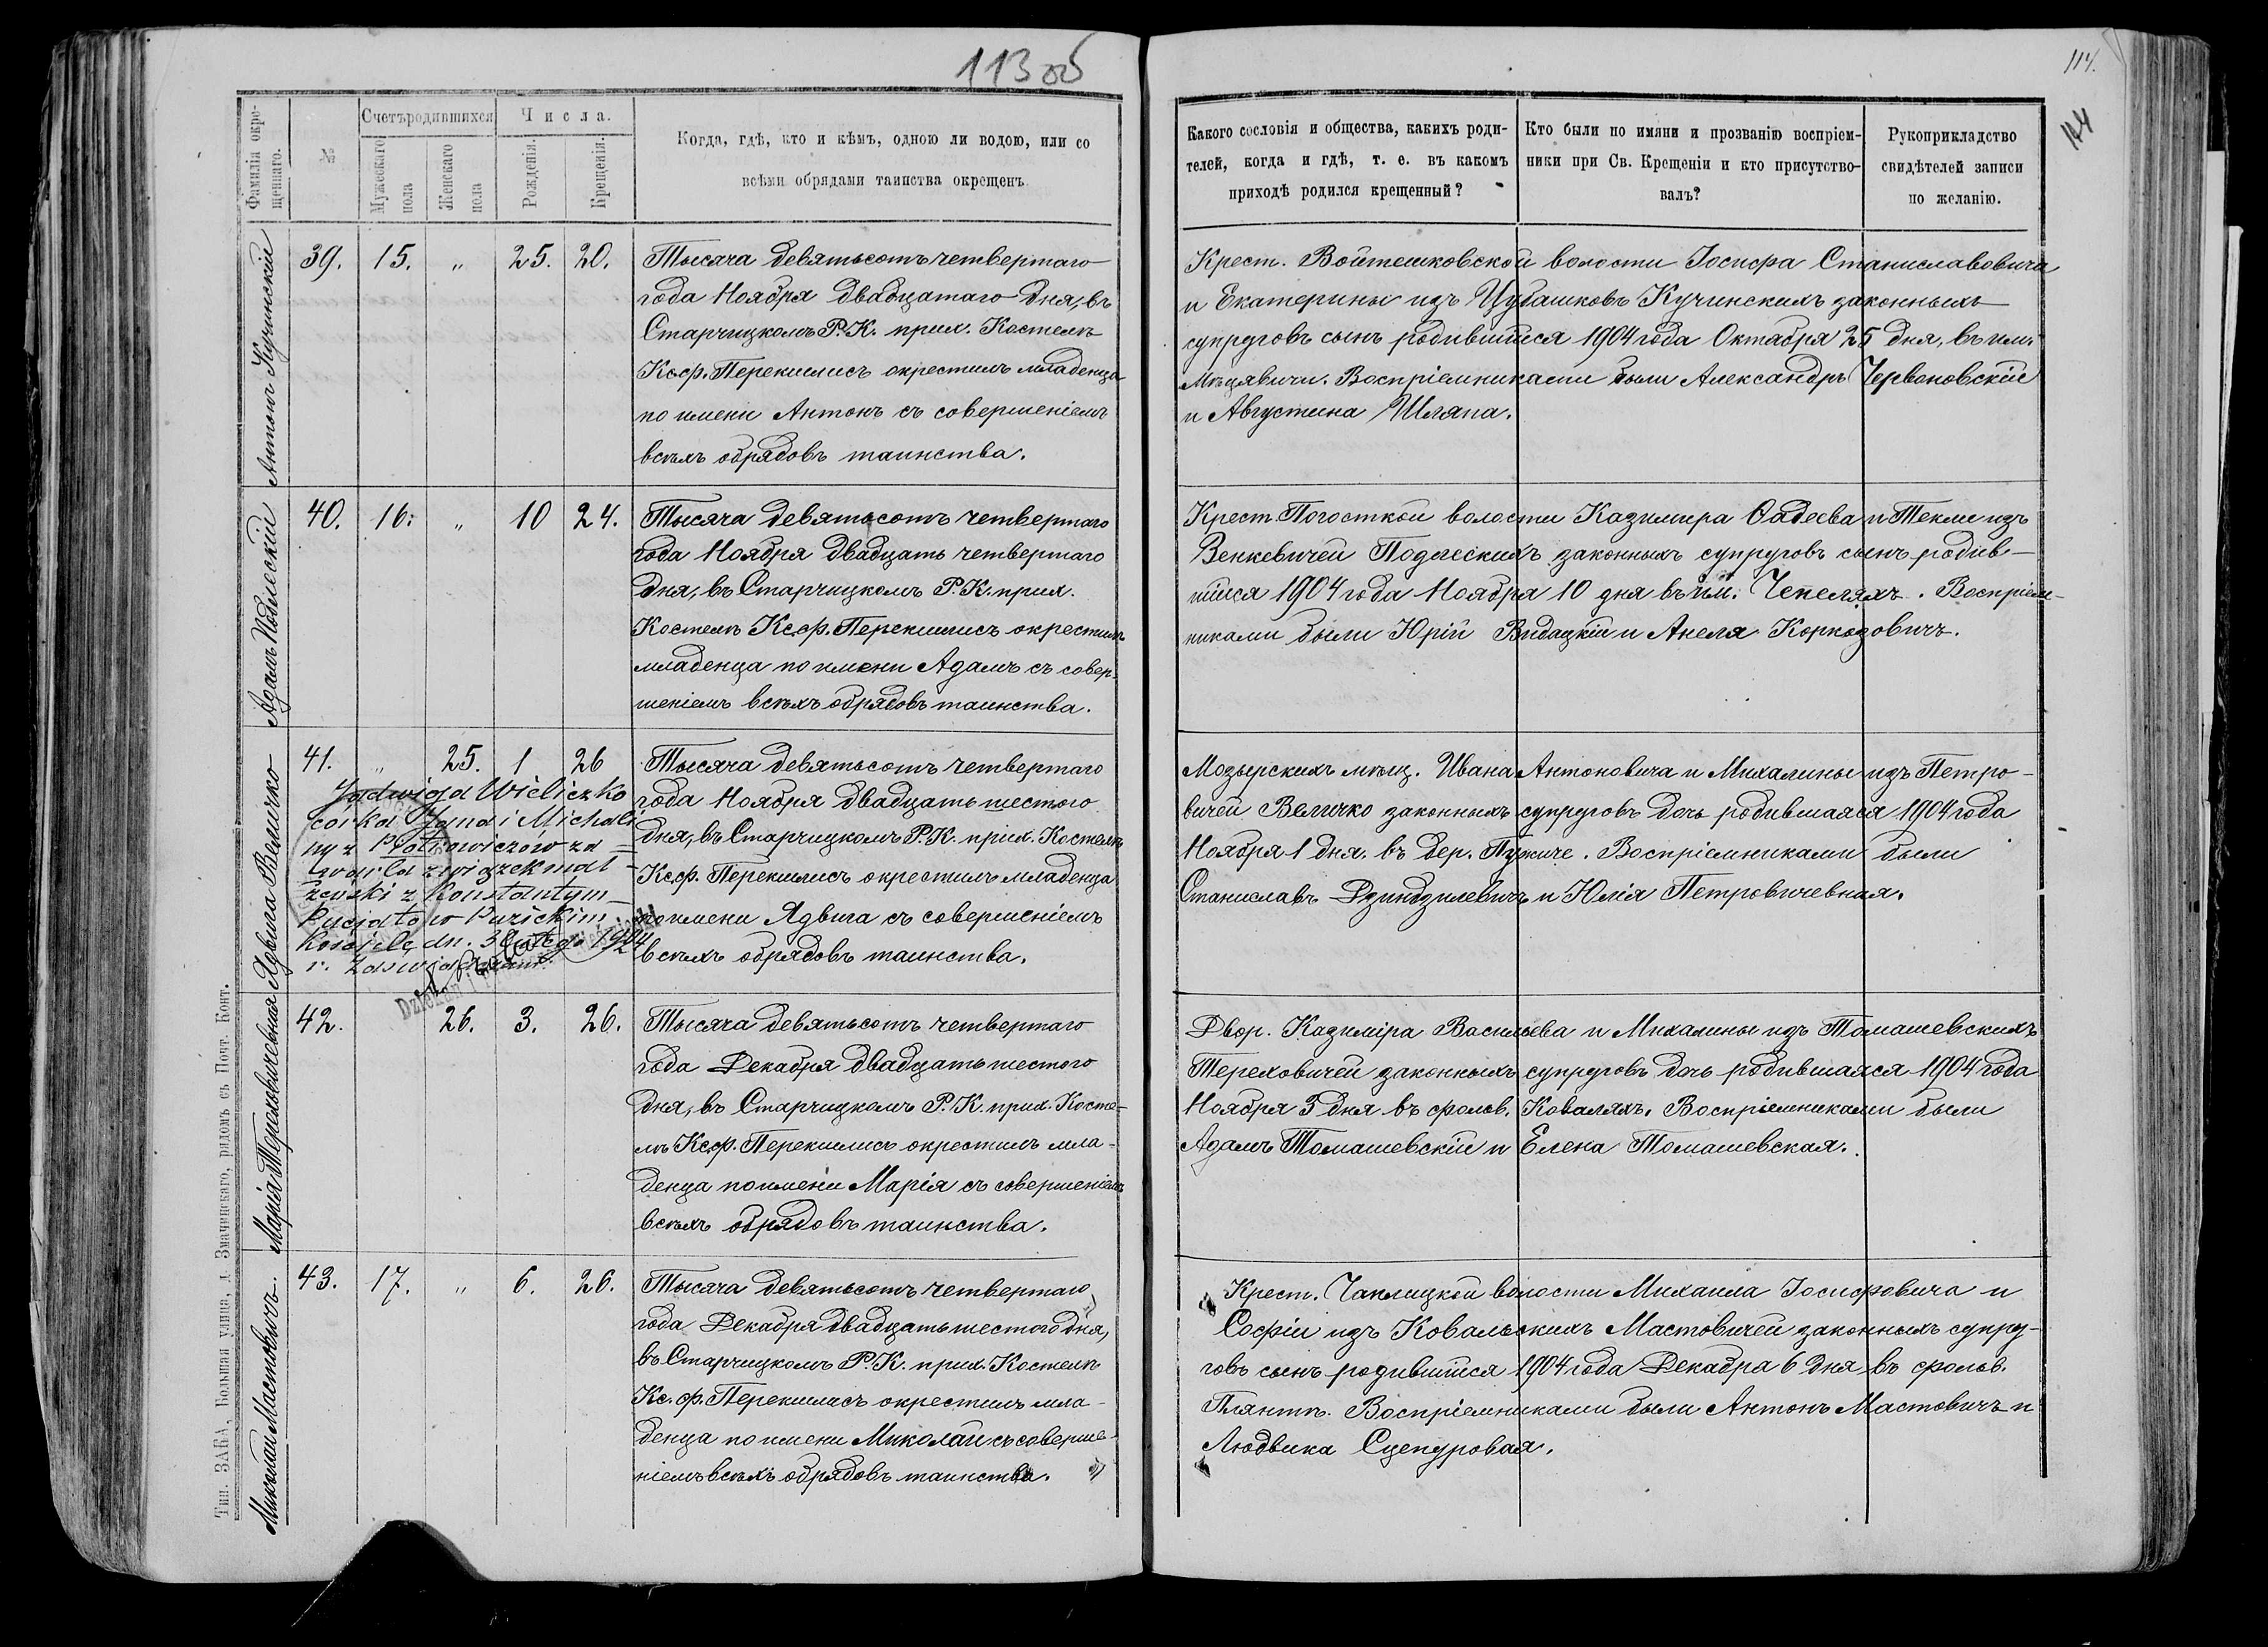 113 об
114.
114
Фамилія окре-
щеннаго.
№
Счетъ родившихся
Мужескаго
пола
Женскаго
пола
Числа.
Рожденія.
Крещенія.
Когда, гдѣ, кто и кѣмъ, одною ли водою, или со
всѣми обрядами таинства окрещенъ
Какого сословія и общества, какихъ роди-
телей, когда и гдѣ, т. е. въ какомъ
приходѣ родился крещенный?
Кто были по имяни и прозванію воспріем-
ники при Св. Крещеніи и кто присутство-
валъ?
Рукоприкладство
свидѣтелей записи
по желанію.
Антонъ Кучинскій
39. 15. „ 25. 20.
Тысяча девятьсотъ четвертаго
года Ноября двадцатаго дня, въ
Старчицкомъ Р. К. прих. Костелѣ
Кс. ф. Перекшлисъ окрестилъ младенца
по имени Антонъ съ совершеніемъ
всѣхъ обрядовъ таинства.
Крест. Войтешковской волости Іосифа Станиславовича
и Екатерины изъ Цубашковъ Кучинскихъ законныхъ
супруговъ сынъ родившійся 1904 года Октября 25 дня, въ им.
Мѣцявичи. Воспріемниками были Александръ Червоновскій
и Августина Шляпа.
Адамъ Подлескій
40. 16. „ 10 24.
Тысяча девятьсотъ четвертаго
года Ноября двадцать четвертаго
дня, въ Старчицкомъ Р. К. прих.
Костелѣ Кс. ф. Перекшлисъ окрестилъ
младенца по имени Адамъ съ совер-
шеніемъ всѣхъ обрядовъ таинства.
Крест. Погосткой волости Казимира Фадеева и Текли изъ
Венкевичей Подлескихъ законныхъ супруговъ сынъ родив-
шійся 1904 года Ноября 10 дня въ им. Чепеляхъ. Воспріем-
никами были Юрій Видацкій и Анеля Коркозовичъ.
Ядвига Величко
41. „ 25. 1 26
Тысяча девятьсотъ четвертаго
года Ноября двадцать шестого
дня, въ Старчицкомъ Р. К. прих. Костелѣ
Кс. ф. Перекшлисъ окрестилъ младенца
по имени Ядвига съ совершеніемъ
всѣхъ обрядовъ таинства.
Jadwiga Wieliczko
córka Jana i Michali-
ny z Piotrowiczów za-
warła związek mał-
żeński z Konstantym
Puzickim
Kościele dn. 30
r. Zaświadczam.
Dziekan
Мозырскихъ мѣщ. Ивана Антоновича и Михалины изъ Петро-
вичей Величко законныхъ супруговъ дочь родившаяся 1904 года
Ноября 1 дня. въ дер. Пужиче. Воспріемниками были
Станиславъ Дзиндзилевичъ и Юлія Петровичевная.
Марія Тереховичевная
42. 26. 3. 26.
Тысяча девятьсотъ четвертаго
года Декабря двадцать шестого
дня, въ Старчицкомъ Р. К. прих. Косте-
лѣ Кс. ф. Перекшлисъ окрестилъ мла-
денца по имени Марія съ совершеніемъ
всѣхъ обрядовъ таинства.
Двор. Казиміра Васильева и Михалины изъ Томашевскихъ
Тереховичей законныхъ супруговъ дочь родившаяся 1904 года
Ноября 3 дня въ фольв. Коваляхъ. Воспріемниками были
Адамъ Томашевскій и Елена Томашевская.
Миколай Мастовичъ.
43. 17. „ 6. 26.
Тысяча девятьсотъ четвертаго
года Декабря двадцать шестого дня,
въ Старчицкомъ Р. К. прих. Костелѣ
Кс. ф. Перекшлисъ окрестилъ мла-
денца по имени Миколай съ соверше-
ніемъ всѣхъ обрядовъ таинства.
Крест. Чаплицкой волости Михаила Іосифовича и
Софіи изъ Ковальскихъ Мастовичей законныхъ супру-
говъ сынъ родившійся 1904 года Декабря 6 дня въ фольв.
Плянтѣ. Воспріемниками были Антонъ Мастовичъ и
Людвика Сцепуровая.
Тип. ЗАБА, Большая улица, д. Значинскаго, рядомъ съ Почт. Конт.